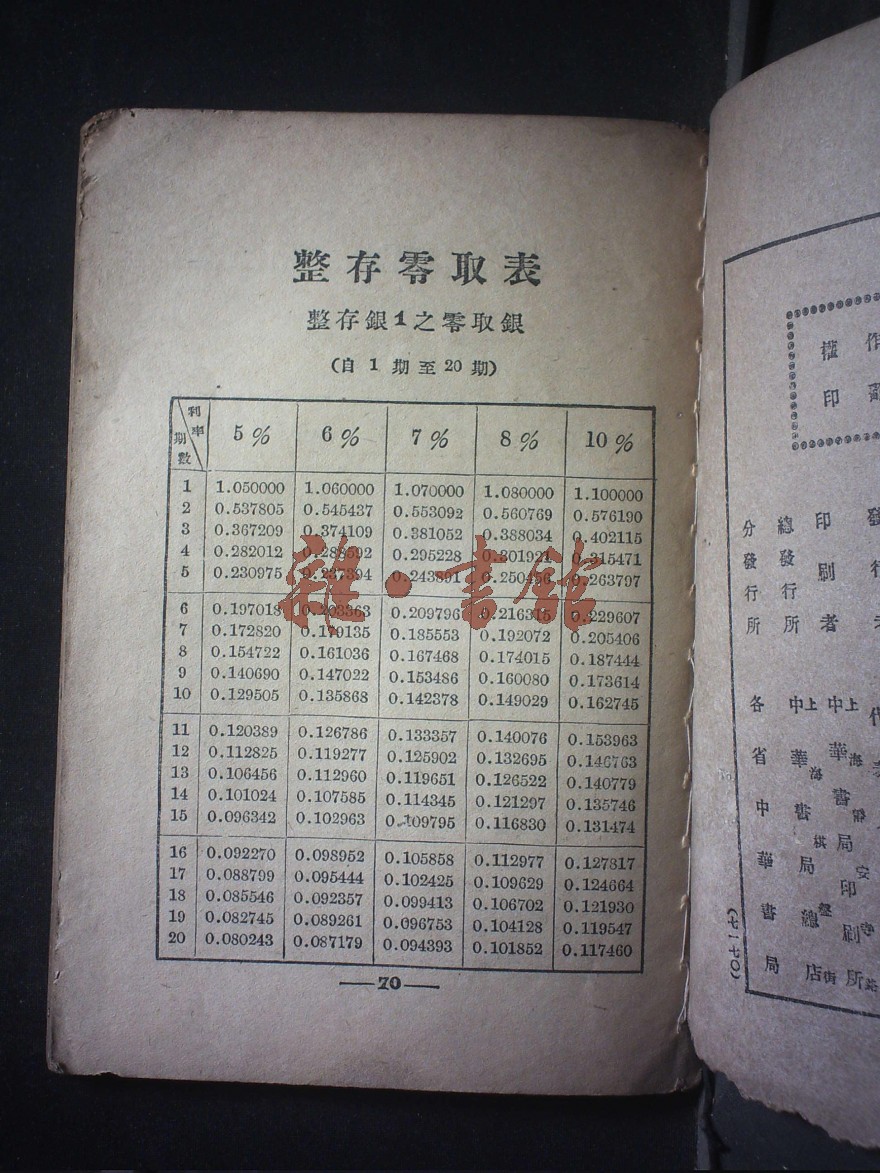 整存零取表
整存銀1之零取銀
(自 1 期至 20 期)
利率 期數 5% 6% 7% 8% 10%
1 1.050000 1.060000 1.070000 1.080000 1.100000
2 0.537805 0.545437 0.553092 0.560769 0.576190
3 0.367209 0.374109 0.381052 0.388034 0.402115
4 0.282012 0.288592 0.295228 0.301921 0.315471
5 0.230975 0.237394 0.243891 0.250456 0.263797
6 0.197018 0.203363 0.209796 0.216315 0.229607
7 0.172820 0.179135 0.185553 0.192072 0.205406
8 0.154722 0.161036 0.167468 0.174015 0.187444
9 0.140690 0.147022 0.153486 0.160080 0.173614
10 0.129505 0.135868 0.142378 0.149029 0.162745
11 0.120389 0.126786 0.133357 0.140076 0.153963
12 0.112825 0.119277 0.125902 0.132695 0.146763
13 0.106456 0.112960 0.119651 0.126522 0.140779
14 0.101024 0.107585 0.114345 0.121297 0.135746
15 0.096342 0.102963 0.109795 0.116830 0.131474
16 0.092270 0.098952 0.105858 0.112977 0.127817
17 0.088799 0.095444 0.102425 0.109629 0.124664
18 0.085546 0.092357 0.099413 0.106702 0.121930
19 0.082745 0.089261 0.096753 0.104128 0.119547
20 0.080243 0.087179 0.094393 0.101852 0.117460
—70—
雜·書館
作
權印
發行
印刷者
總發行所
分發行所
代表
上海靜安寺路
中華書局印刷所
上海棋盤街
中華書局總店
各省中華書局